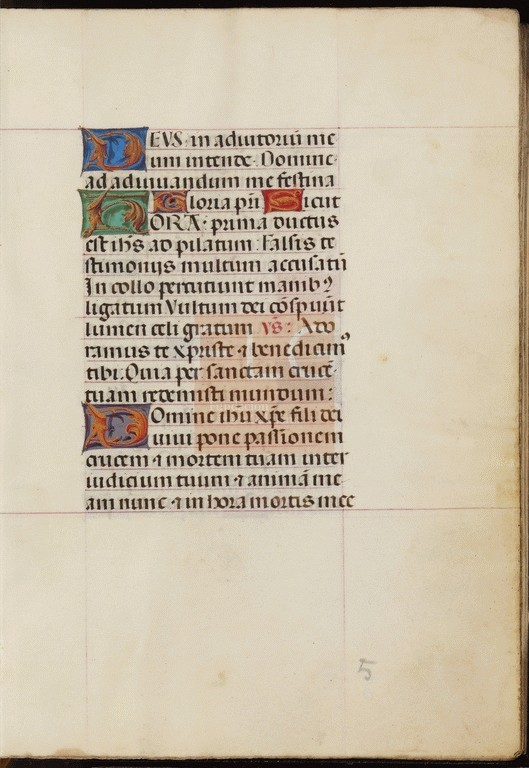 DEVS · in adiutoriū me
um intende · Domine
ad adiuuandum me festina
Gloria pr̄i Sicut
HORA · prima ductus
est ih̄s ad pilatum : Falsis te
stimonijs multum accusatū
In collo percutiunt manibꝰ
ligatum Vultum dei cōspuūt
lumen celi gratum v̄s : Ado
ramus te xp̄riste ⁊ benedicimꝰ
tibi : Quia per sanctam crucē
tuam redemisti mundum :
Domine ih̄u xp̄e fili dei
uiui pone passionem
crucem ⁊ mortem tuam inter
iudicium tuum ⁊ animā me
am nunc ⁊ in hora mortis mee
5